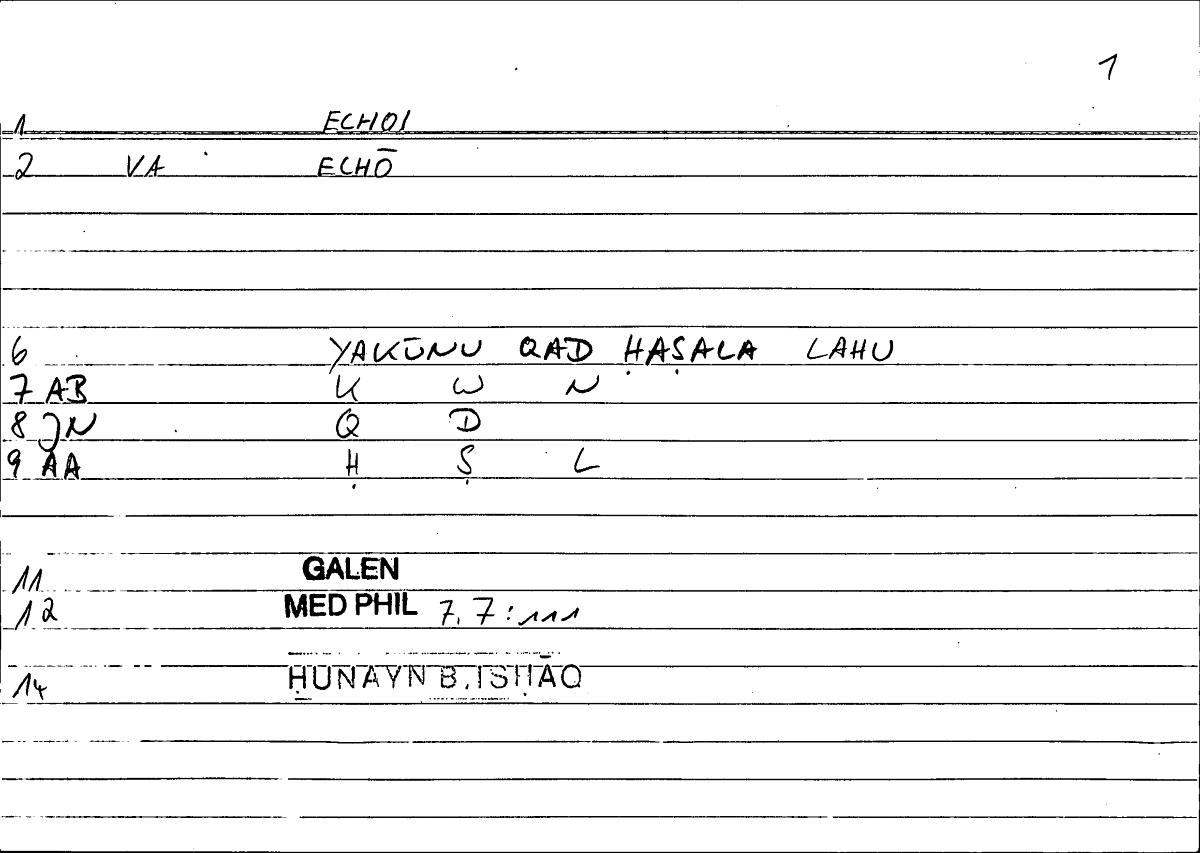 1
1 ECHOI
2 VA ECHŌ
6 YAKŪNU QAD ḤAṢALA LAHU
7 AB K W N
8 JN Q D
9 AA Ḥ Ṣ L
11 GALEN
12 MED PHIL 7,7:111
14 ḤUNAYN B. ISḤĀQ